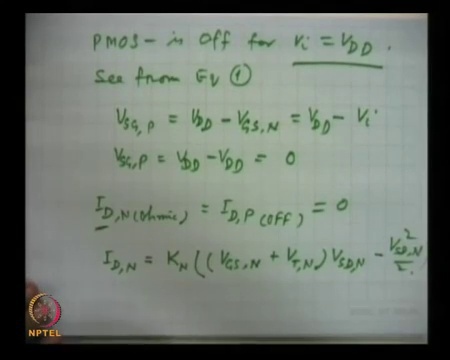 PMOS - is off for Vi = VDD.
See from Eq ①
VSG,P = VDD - VGS,N = VDD - Vi
VSG,P = VDD - VDD = 0
ID,N (ohmic) = ID,P (OFF) = 0
ID,N = KN ((VGS,N + VT,N) VSD,N - VSD,N²/2.
NPTEL